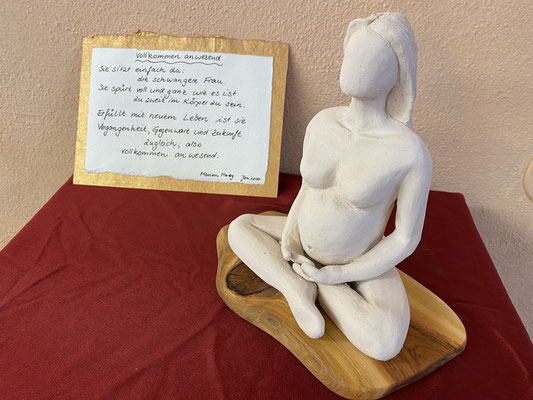 Vollkommen anwesend
Sie sitzt einfach da:
die schwangere Frau.
Sie spürt voll und ganz wie es ist
zu zweit im Körper zu sein.
Erfüllt mit neuem Leben ist sie
Vergangenheit, Gegenwart und Zukunft
zugleich, also
vollkommen anwesend.
Marion